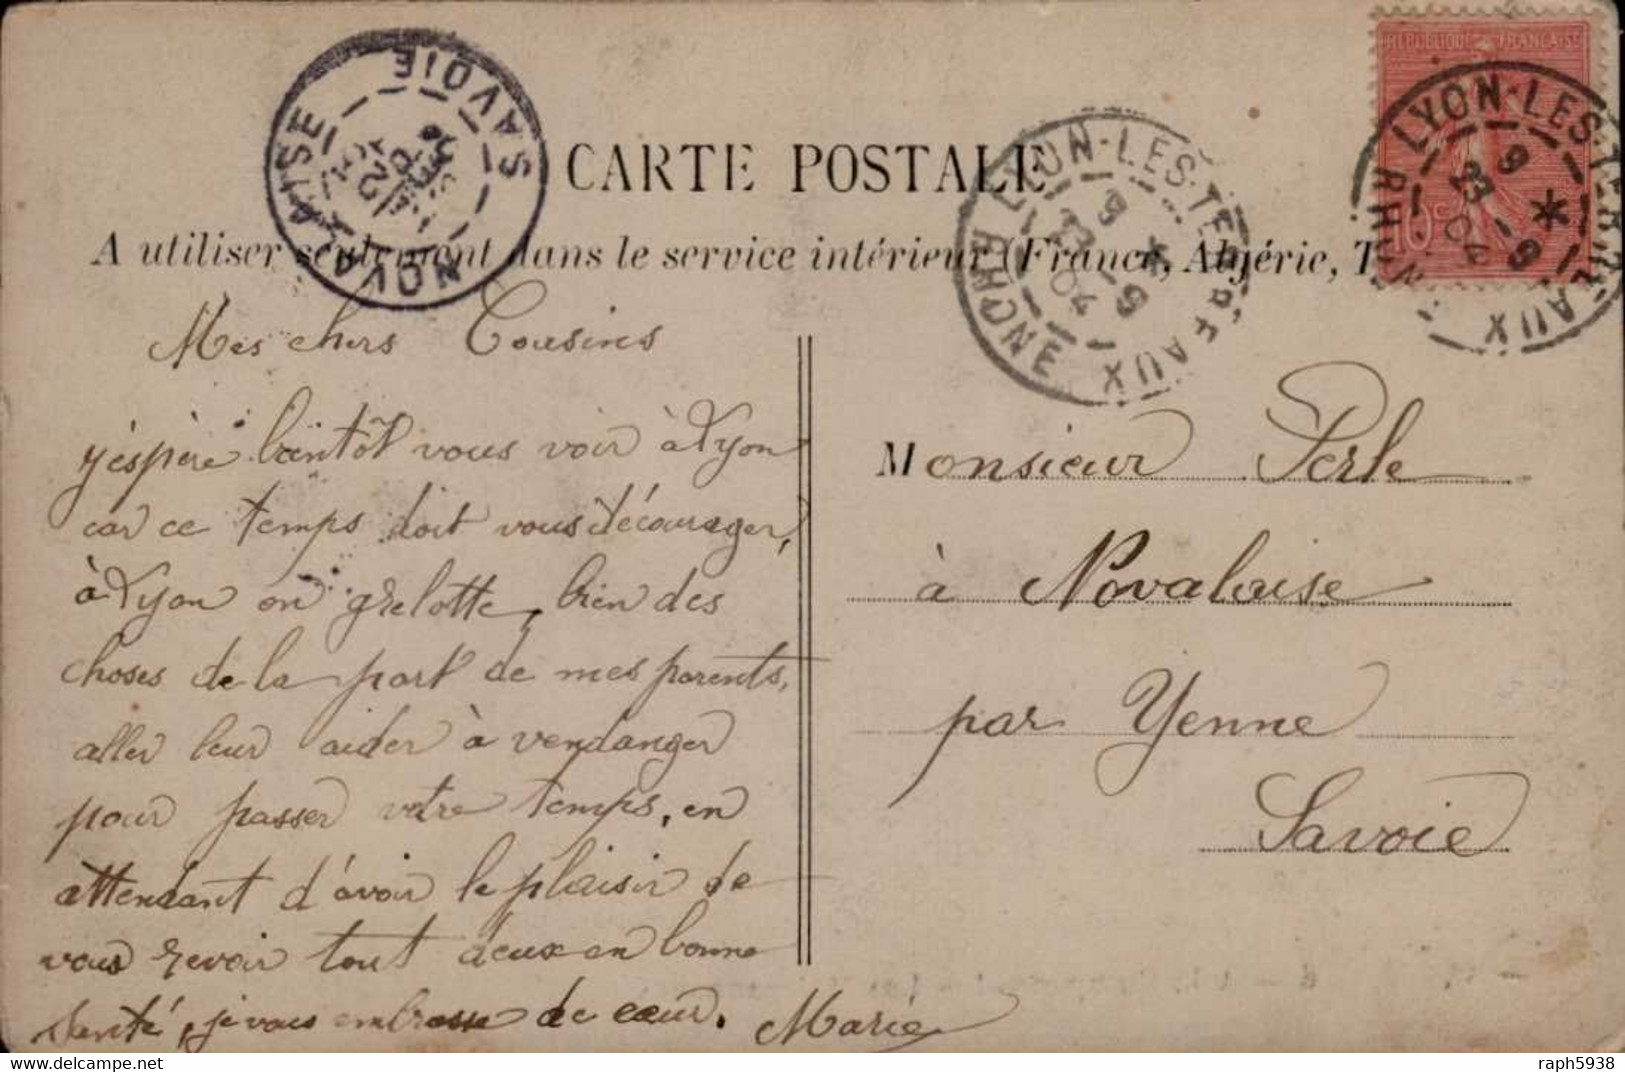 REPUBLIQUE FRANÇAISE
10c
NOVALAISE SAVOIE
LYON-LES-TERREAUX
RHONE
9
23 - 9
04
LYON-LES-TERREAUX
RHONE
9
23 - 9
04
CARTE POSTALE
A utiliser seulement dans le service intérieur (France, Algérie, T
Mes chers Cousins
j'éspère bientôt vous voir à Lyon
car ce temps doit vous décourager,
à Lyon on grelotte, bien des
choses de la part de mes parents,
aller leur aider à vendanger
pour passer votre temps, en
attendant d'avoir le plaisir de
vous revoir tout deux en bonne
santé, je vous embrasse de cœur. Marie
Monsieur Perle
à Novalaise
par Yenne
Savoie
raph5938